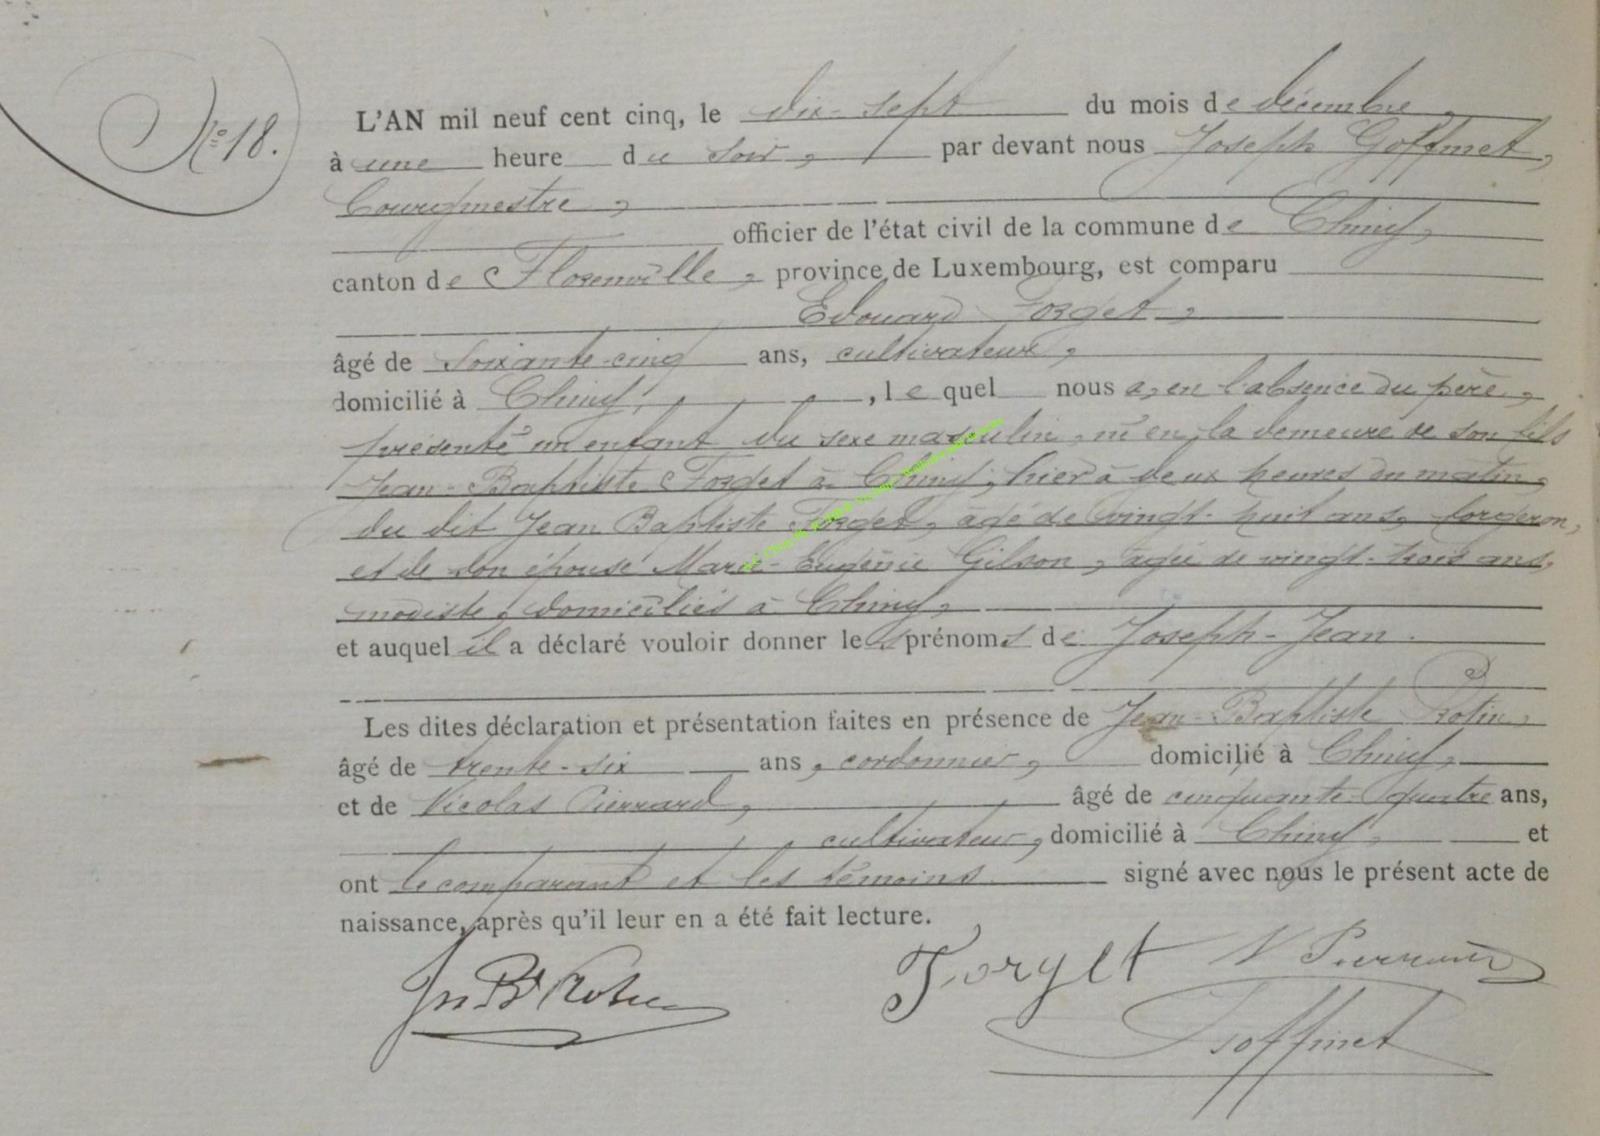 N° 18.
L'AN mil neuf cent cinq, le dix-sept du mois de décembre,
à une heure du soir, par devant nous Joseph Goffinet,
bourgmestre,
officier de l'état civil de la commune de Chiny,
canton de Florenville, province de Luxembourg, est comparu
Edouard Forget,
âgé de soixante-cinq ans, cultivateur,
domicilié à Chiny, lequel nous a, en l'absence du père,
présenté un enfant du sexe masculin, né en la demeure de son fils
Jean-Baptiste Forget à Chiny, hier à deux heures du matin,
du dit Jean Baptiste Forget, âgé de vingt-huit ans, forgeron,
et de son épouse Marie-Eugénie Gilson, âgée de vingt-trois ans,
modiste, domiciliés à Chiny,
et auquel il a déclaré vouloir donner les prénoms de Joseph-Jean.
Les dites déclaration et présentation faites en présence de Jean-Baptiste Rotin,
âgé de trente-six ans, cordonnier, domicilié à Chiny,
et de Nicolas Pierrard, âgé de cinquante-quatre ans,
cultivateur, domicilié à Chiny, et
ont le comparant et les témoins signé avec nous le présent acte de
naissance, après qu'il leur en a été fait lecture.
Jn Bt Rotin Forget N Pierrard
Goffinet